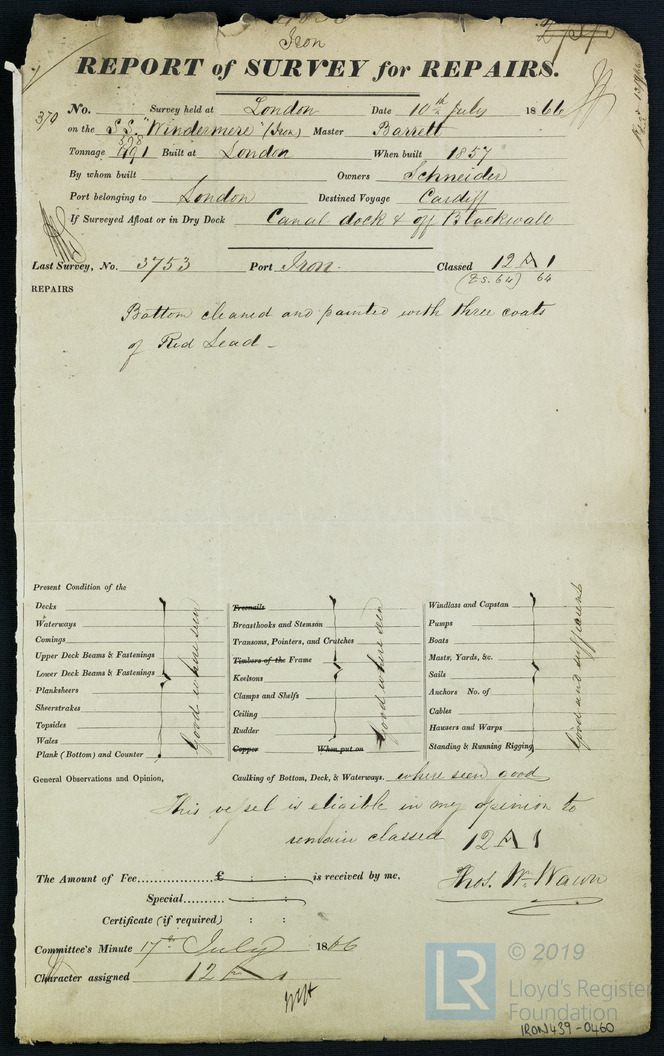 Iron
REPORT of SURVEY for REPAIRS.
370 No. Survey held at London Date 10th July 1866
on the S.S. "Windermere" (Iron) Master Barrett
Tonnage 491 Built at London When built 1857
By whom built Owners Schneider
Port belonging to London Destined Voyage Cardiff
If Surveyed Afloat or in Dry Dock Canal dock & off Blackwall
Last Survey, No. 3753 Port Iron. Classed 12 A 1
(Es. 64) 64
REPAIRS
Bottom cleaned and painted with three coats
of Red Lead —
Present Condition of the
Decks
Waterways
Comings
Upper Deck Beams & Fastenings
Lower Deck Beams & Fastenings
Planksheers
Sheerstrakes
Topsides
Wales
Plank (Bottom) and Counter
Good where seen
Treenails
Breasthooks and Stemson
Transoms, Pointers, and Crutches
Timbers of the Frame
Keelsons
Clamps and Shelfs
Ceiling
Rudder
Copper When put on
Good where seen
Windlass and Capstan
Pumps
Boats
Masts, Yards, &c.
Sails
Anchors No. of
Cables
Hawsers and Warps
Standing & Running Rigging
Good and sufficient
General Observations and Opinion, Caulking of Bottom, Deck, & Waterways. where seen good
This vessel is eligible in my opinion to
remain classed 12 A 1
The Amount of Fee.............. £ : : is received by me,
Special............ : :
Thos. W. Wawn
Certificate (if required) : :
Committee's Minute 17th July 1866
Character assigned 12 A 1
© 2019
LR
Lloyd's Register
Foundation
IRON439-0460